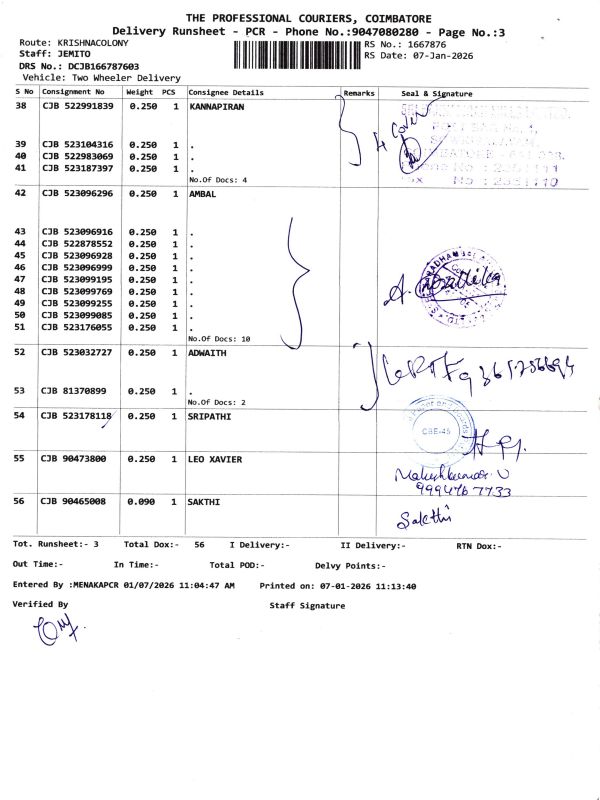 THE PROFESSIONAL COURIERS, COIMBATORE
Delivery Runsheet - PCR - Phone No.:9047080280 - Page No.:3
Route: KRISHNACOLONY RS No.: 1667876
Staff: JEMITO RS Date: 07-Jan-2026
DRS No.: DCJB166787603
Vehicle: Two Wheeler Delivery
S No Consignment No Weight PCS Consignee Details Remarks Seal & Signature
38 CJB 522991839 0.250 1 KANNAPIRAN
4 Cover
39 CJB 523104316 0.250 1 .
40 CJB 522983069 0.250 1 .
41 CJB 523187397 0.250 1 .
No.Of Docs: 4
42 CJB 523096296 0.250 1 AMBAL
43 CJB 523096916 0.250 1 .
44 CJB 522878552 0.250 1 .
45 CJB 523096928 0.250 1 .
46 CJB 523096999 0.250 1 .
47 CJB 523099195 0.250 1 .
48 CJB 523099769 0.250 1 .
49 CJB 523099255 0.250 1 .
50 CJB 523099085 0.250 1 .
51 CJB 523176055 0.250 1 .
No.Of Docs: 10
52 CJB 523032727 0.250 1 ADWAITH
53 CJB 81370899 0.250 1 .
No.Of Docs: 2
54 CJB 523178118 0.250 1 SRIPATHI
CBE-45
55 CJB 90473800 0.250 1 LEO XAVIER
Maheshkumar U
9994767733
56 CJB 90465008 0.090 1 SAKTHI
Sakthi
Tot. Runsheet:- 3 Total Dox:- 56 I Delivery:- II Delivery:- RTN Dox:-
Out Time:- In Time:- Total POD:- Delvy Points:-
Entered By :MENAKAPCR 01/07/2026 11:04:47 AM Printed on: 07-01-2026 11:13:40
Verified By Staff Signature